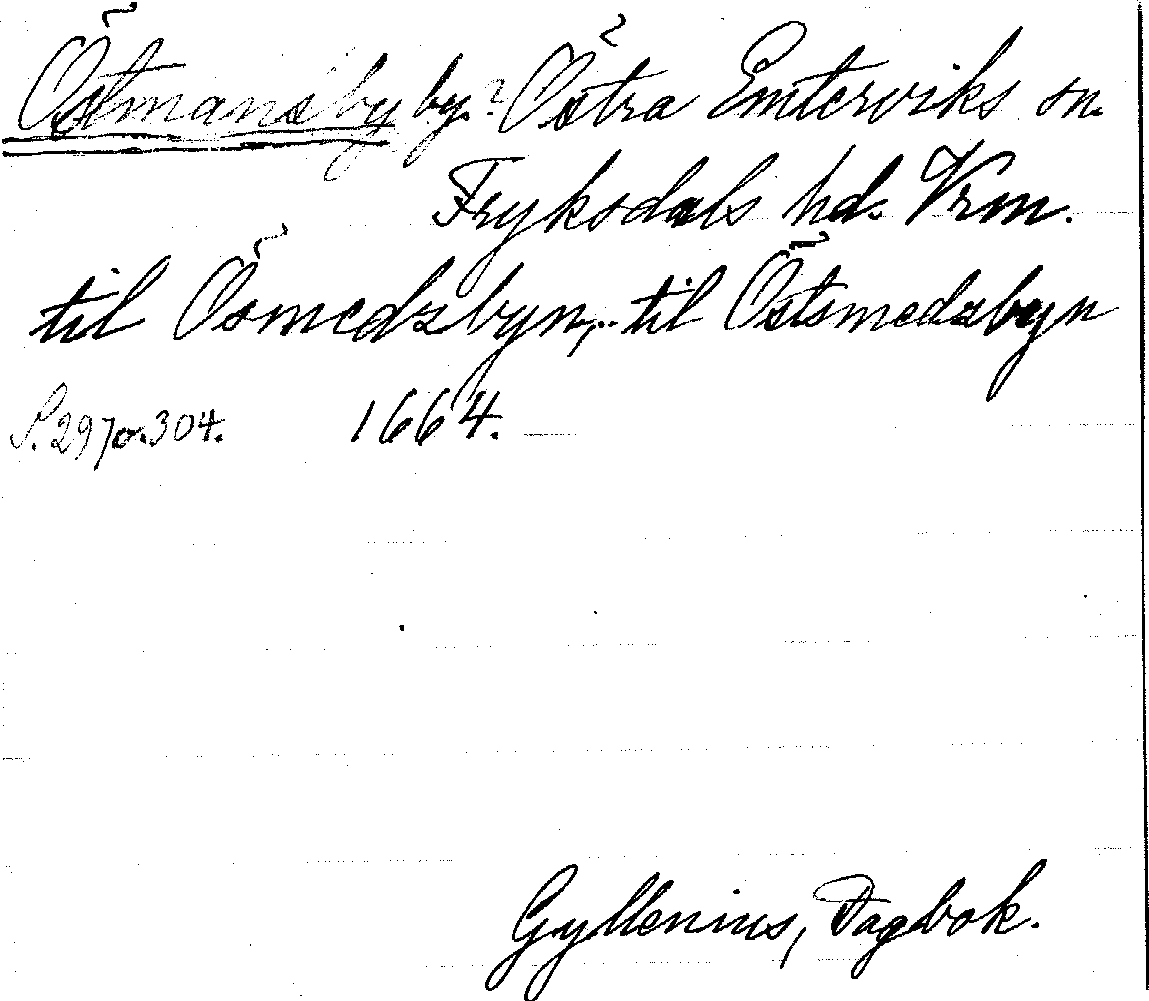 Östmansby by.? Östra Emterviks sn.
Fryksdals hd. Vrm.
til Ösmedzbyn,.. til Östsmedzbyn
S. 297 o. 304. 1664.
Gyllenius, Dagbok.